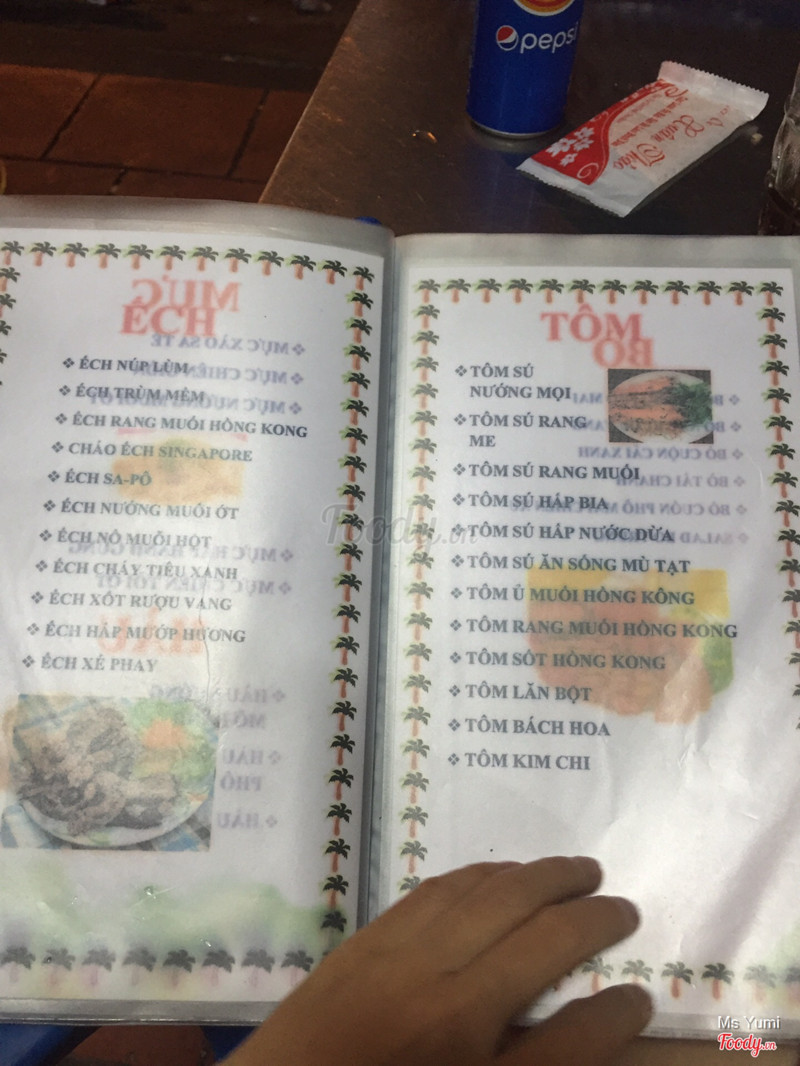 pepsi
Xuân Thảo
ẾCH
❖ ẾCH NÚP LÙM
❖ ẾCH TRÙM MỀM
❖ ẾCH RANG MUỐI HỒNG KONG
❖ CHÁO ẾCH SINGAPORE
❖ ẾCH SA-PÔ
❖ ẾCH NƯỚNG MUỐI ỚT
❖ ẾCH NỘ MUỖI HỘT
❖ ẾCH CHÁY TIÊU XANH
❖ ẾCH XỐT RƯỢU VANG
❖ ẾCH HẤP MƯỚP HƯƠNG
❖ ẾCH XÉ PHAY
TÔM
❖ TÔM SÚ
NƯỚNG MỌI
❖ TÔM SÚ RANG
ME
❖ TÔM SÚ RANG MUỐI
❖ TÔM SÚ HẤP BIA
❖ TÔM SÚ HẤP NƯỚC DỪA
❖ TÔM SÚ ĂN SỐNG MÙ TẠT
❖ TÔM Ủ MUỐI HỒNG KÔNG
❖ TÔM RANG MUỐI HỒNG KONG
❖ TÔM SỐT HỒNG KONG
❖ TÔM LĂN BỘT
❖ TÔM BÁCH HOA
❖ TÔM KIM CHI
Foody.vn
Ms Yumi
Foody.vn